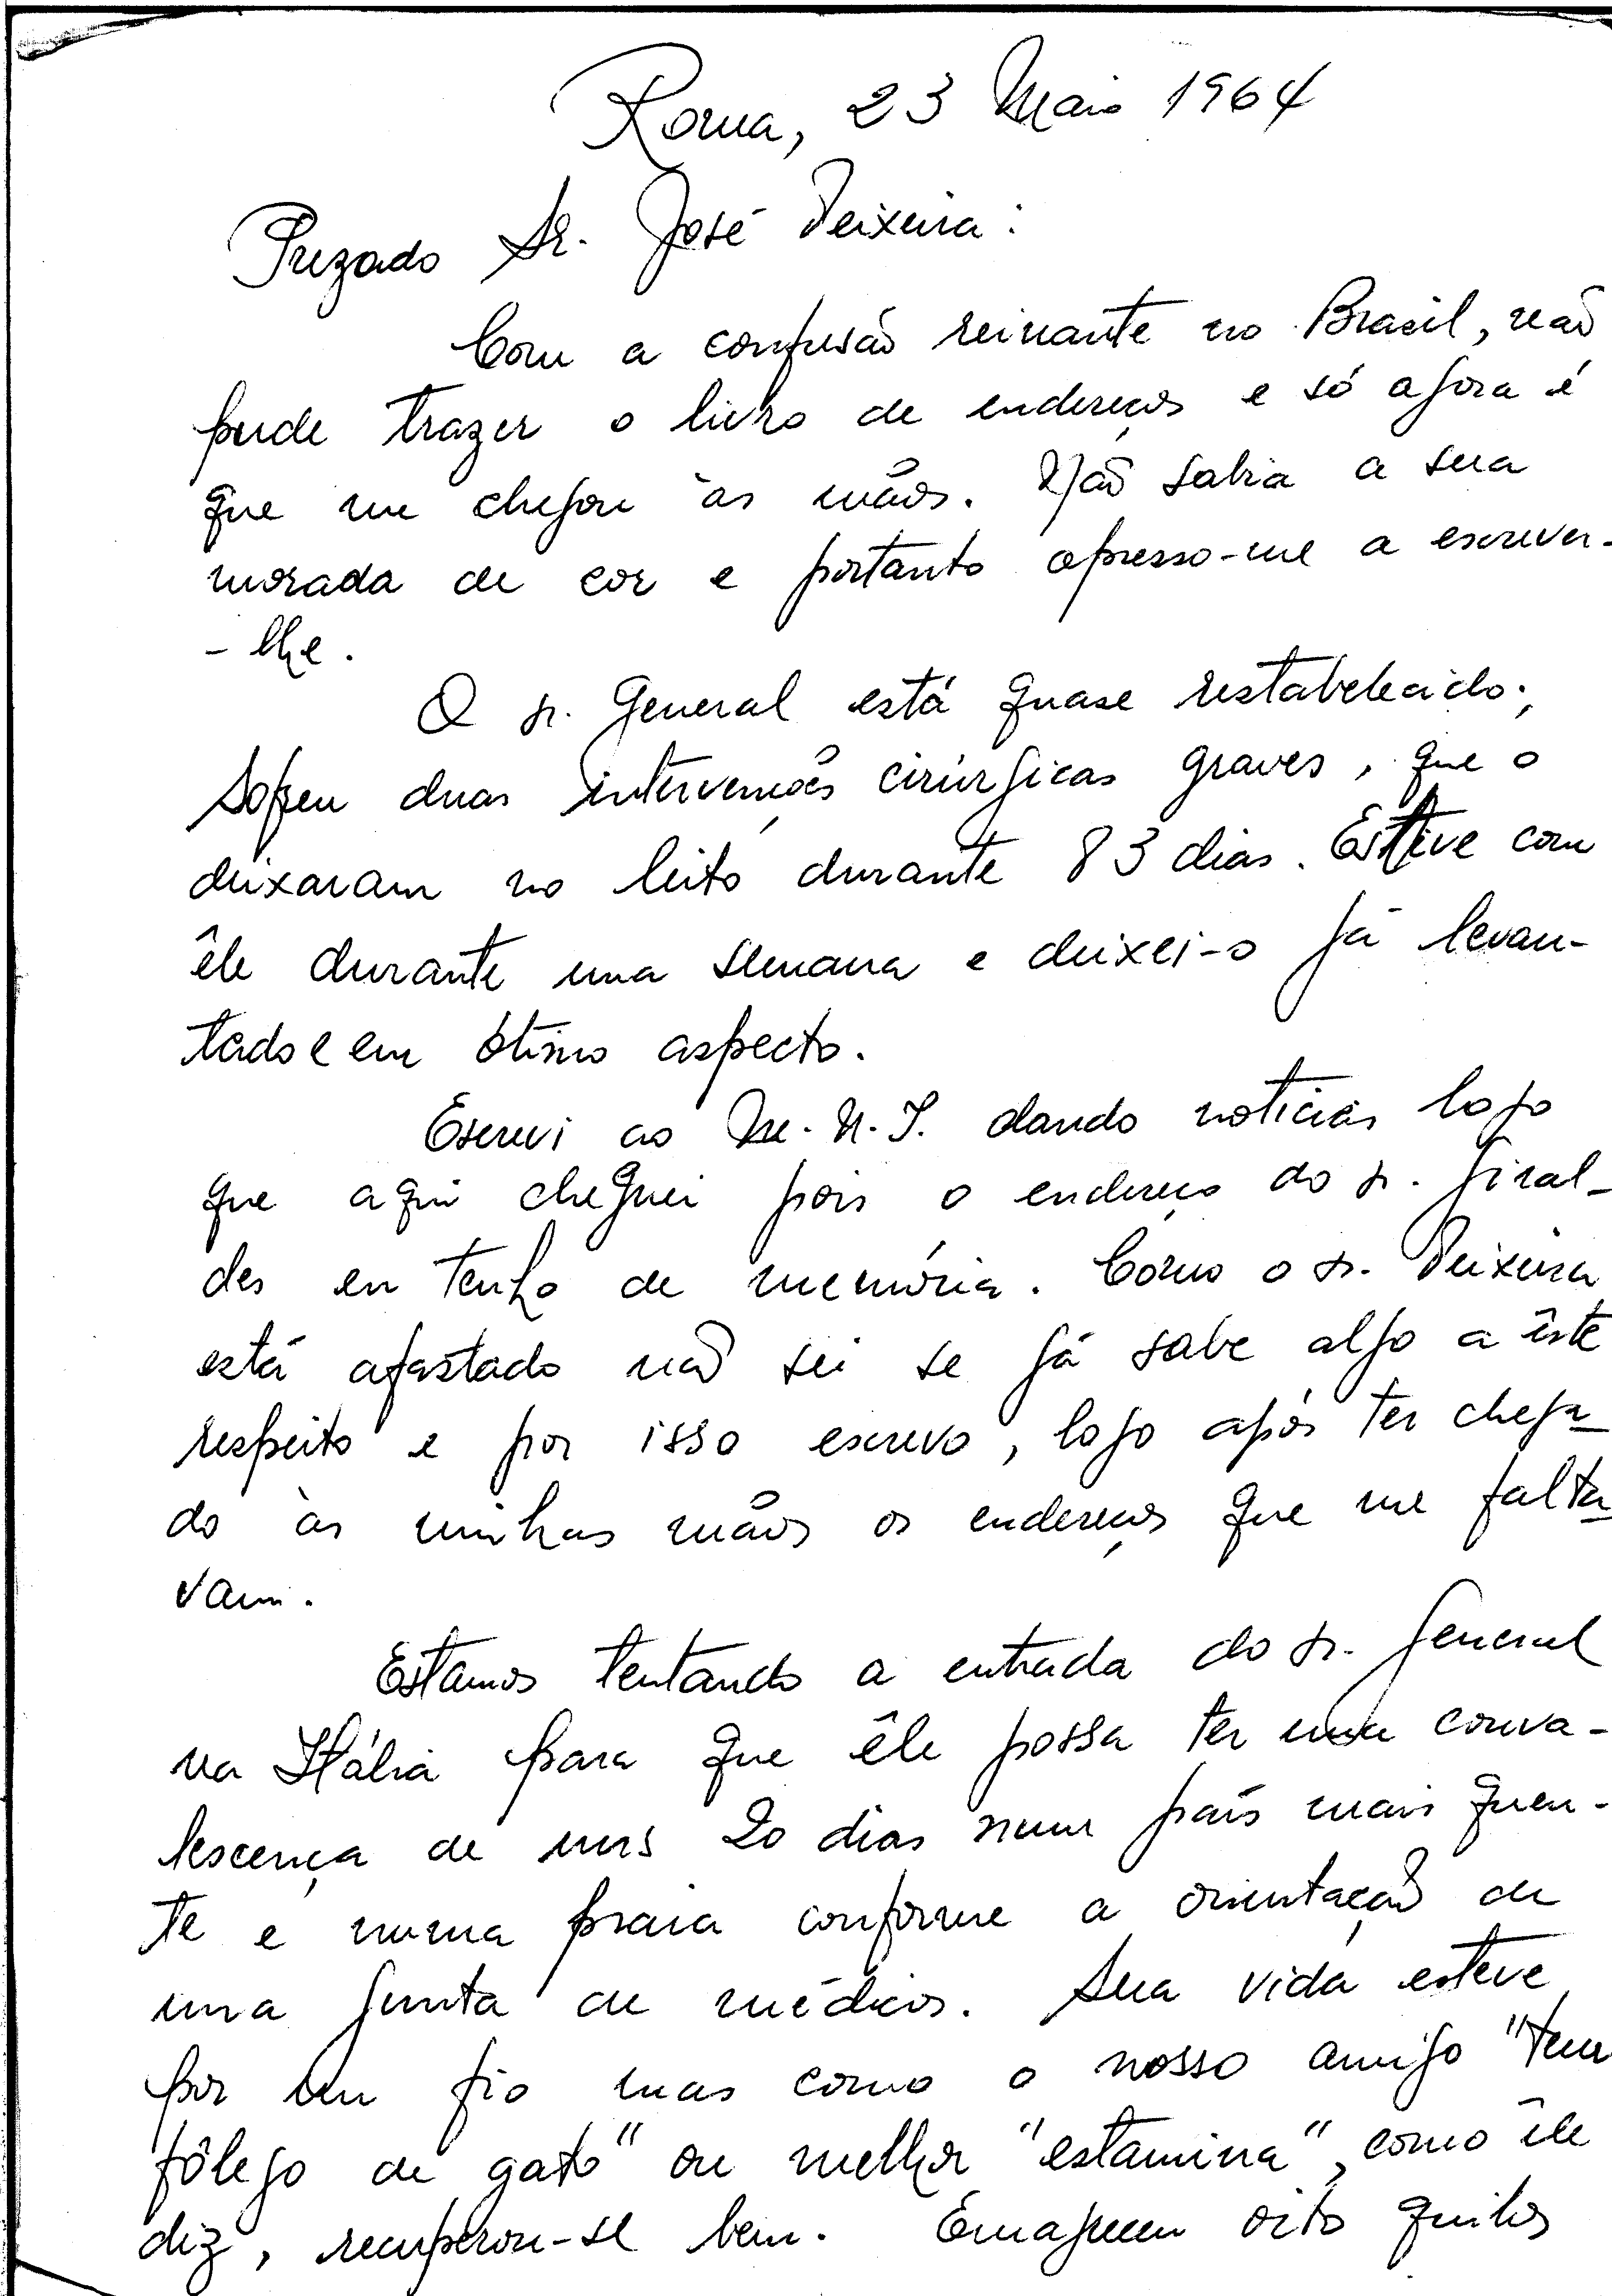 Roma, 23 Maio 1964
Prezado Sr. José Teixeira:
Com a confusão reinante no Brasil, não
pude trazer o livro de endereços e só agora é
que me chegou às mãos. Não sabia a sua
morada de cor e portanto apresso-me a escrever-
-lhe.
O sr. General está quase restabelecido;
sofreu duas intervenções cirúrgicas graves, que o
deixaram no leito durante 83 dias. Estive com
êle durante uma semana e deixei-o já levan-
tado e em ótimo aspecto.
Escrevi ao M.N.I. dando notícias logo
que aqui cheguei pois o endereço do sr. Giral-
des eu tenho de memória. Como o sr. Teixeira
está afastado não sei se já sabe algo a êste
respeito e por isso escrevo, logo após ter chega-
do às minhas mãos os endereços que me falta-
vam.
Estamos tentando a entrada do sr. General
na Itália para que êle possa ter uma conva-
lescença de uns 20 dias num país mais quen-
te e numa praia conforme a orientação de
uma junta de médicos. Sua vida esteve
por um fio mas como o nosso amigo "tem
fôlego de gato" ou melhor "estamina", como êle
diz, recuperou-se bem. Emagreceu oito quilos